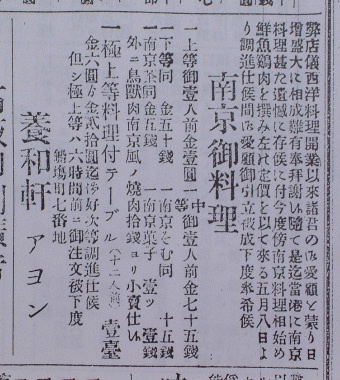 弊店儀西洋料理開業以來諸君の御愛顧を蒙り日
增盛大に相成難有奉拜謝候隨て是迄當港に南京
料理甚た遺憾に存候に付今度傍南京料理相始め
鮮魚鷄肉を撰み左に定價を以て來る五月八日よ
り調進仕候間御愛顧御引立被成下度奉希候
南京御料理
一上等御壹人前金壹圓 一中等御壹人前金七十五錢
一下等同 金五十錢 一南京そむ同 十五錢
一南京茶同金五錢 一南京菓子 壹ッ 壹錢
外ニ鳥獸肉南京風ノ燒肉拾錢ヨリ小賣仕候
一極上等料理付テーブル(十二人前)壹臺
金六圓ゟ金貳拾圓迄御好次等調進仕候
但シ極上等ハ六時間前ニ御注文被下度
鶴塲町七番地
養和軒 アヨン